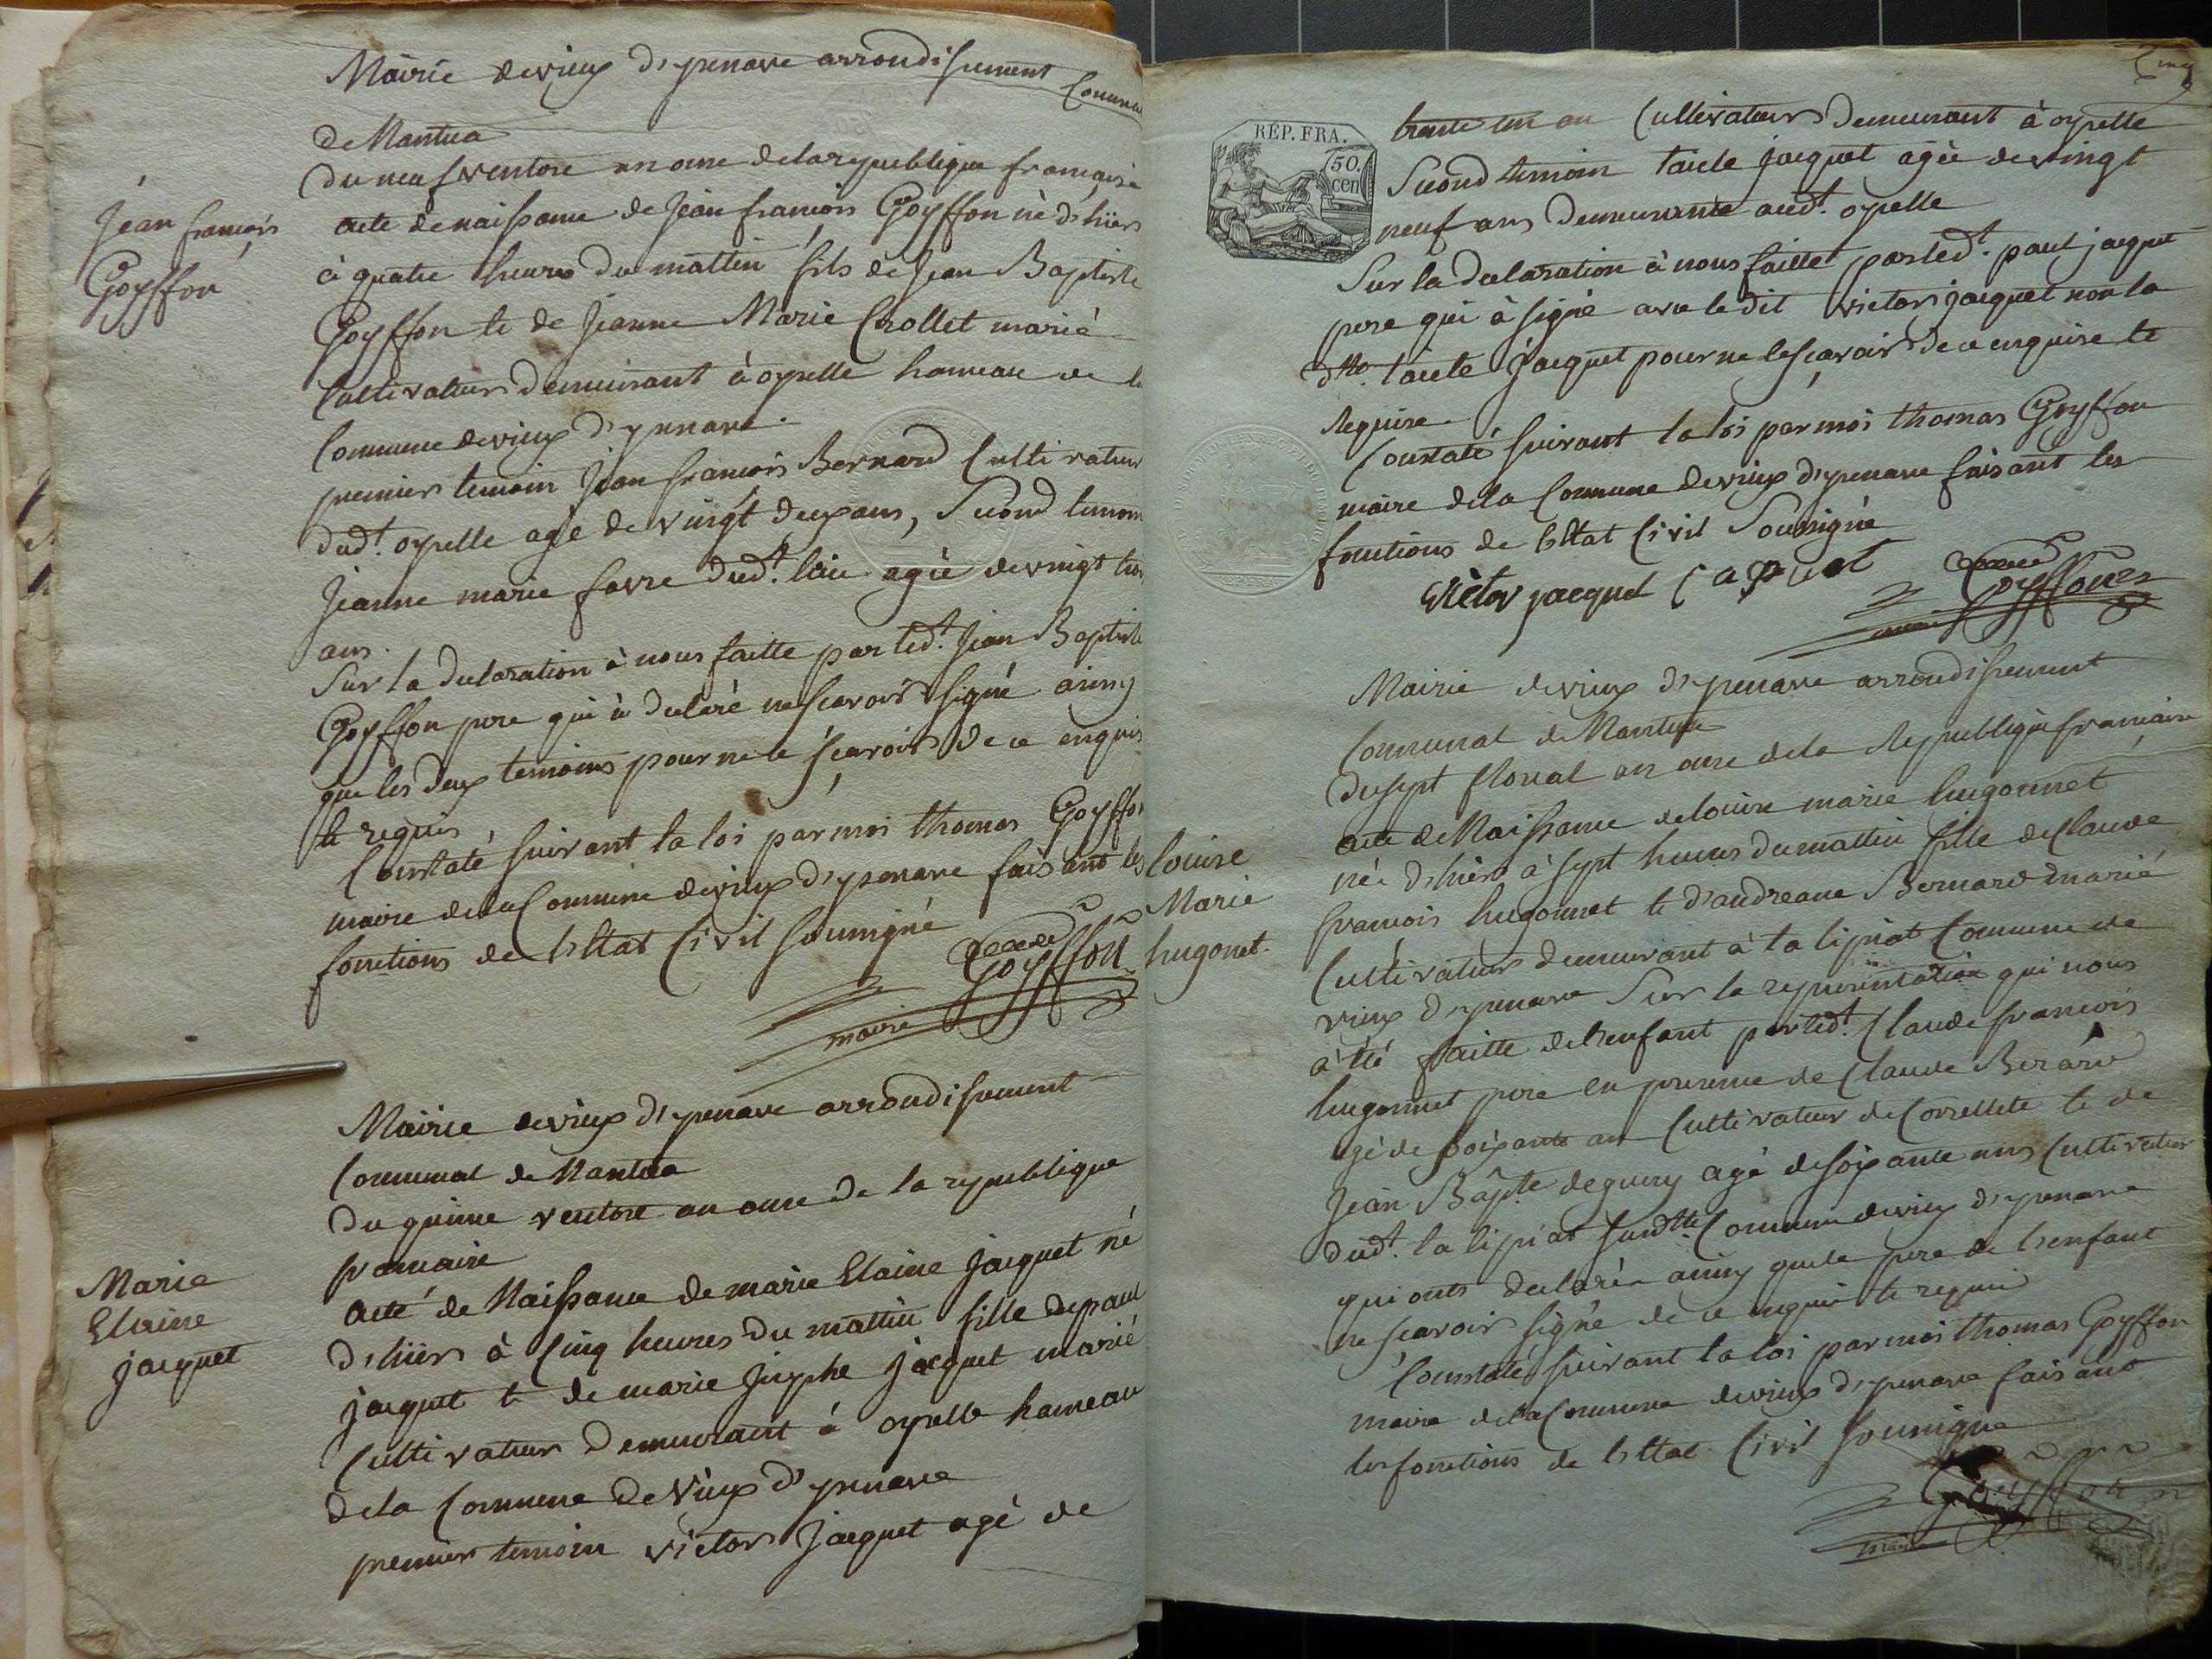 Mairie de vieux d'yzenave arrondissement
Communal
de Nantua
du neuf ventose an onze de la republique francaise
Jean francois
Goyffon
acte de naissance de Jean francois Goyffon né d'hiers
à quatre heures du mattin fils de Jean Baptiste
Goyffon et de Jeanne Marie Crollet marié
Cultivateurs demeurant à oyselle hameau de la
Commune de vieux d'yzenave.
premiers temoin Jean francois Bernard Cultivateur
dudt. oyselle agé de vingt deux ans, Second temoin
Jeanne marie favre dudt. lieu agée de vingt trois
ans.
Sur la declaration à nous faitte par ledt. Jean Baptiste
Goyffon pere qui à declaré ne scavoir signé ainsy
que les deux temoins pour ne le scavoir de ce enquis
et requis
Constaté suivant la loi par moi thomas Goyffon
maire de la Commune de vieux d'yzenave faisant les
fonctions de l'Etat Civil soussigné
Goyffon
maire
Mairie de vieux d'yzenave arrondissement
Communal de Nantua
du quinze ventose an onze de la republique
francaise
Marie
Elaine
jacquet
acte de Naissance de marie Elaine jacquet né
d'hiers à Cinq heures du mattin fille de paul
jacquet et de marie Josephe jacquet marié
Cultivateurs demeurant à oyselle hameau
de la Commune de Vieux d'yzenave
premier temoin victor Jacquet agé de
Cinq
RÉP. FRA.
50.
cen
trente un an Cultivateurs demeurant à oyselle
Second temoin jacquet agée de vingt
neuf ans demeurante audt. oyselle
Sur la declaration à nous faitte par ledt. paul jacquet
pere qui à signé avec le dit victor jacquet non la
dtte. jacquet pour ne le scavoir de ce enquise et
Requise.
Constaté suivant la loi par moi thomas Goyffon
maire de la Commune de vieux d'yzenave faisant les
fonctions de l'Etat Civil Soussigné
victor jacquet
Goyffon
maire
Mairie de vieux d'yzenave arrondissement
Communal de Nantua
du sept floreal an onze de la Republique francaise
louise
Marie
hugonet.
acte de Naissance de louise marie hugonnet
née d'hiers à sept heures du mattin fille de Claude
francois hugonnet et d'andreane Bernard marié
Cultivateurs demeurant à la lipiat Commune de
vieux d'yzenave Sur la representation qui nous
à été faitte de l'enfant par ledt. Claude francois
hugonnet pere en presence de Claude Berard
agé de soixante an Cultivateur de Corcellete et de
Jean Bapte. deguery agé de soixante ans Cultivateur
dudt. la lipiat susdtte. Commune de vieux d'yzenave
qui onts declarée ainsy que le pere de l'enfant
ne scavoir signé de ce enquis et requis
Constaté suivant la loi par moi thomas Goyffon
maire de la Commune de vieux d'yzenave faisant
les fonctions de l'Etat Civil soussigné
Goyffon
maire